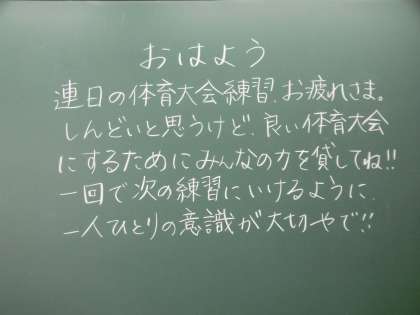 おはよう
連日の体育大会練習、お疲れさま。
しんどいと思うけど、良い体育大会
にするためにみんなの力を貸してね!!
一回で次の練習にいけるように、
一人ひとりの意識が大切やで!!